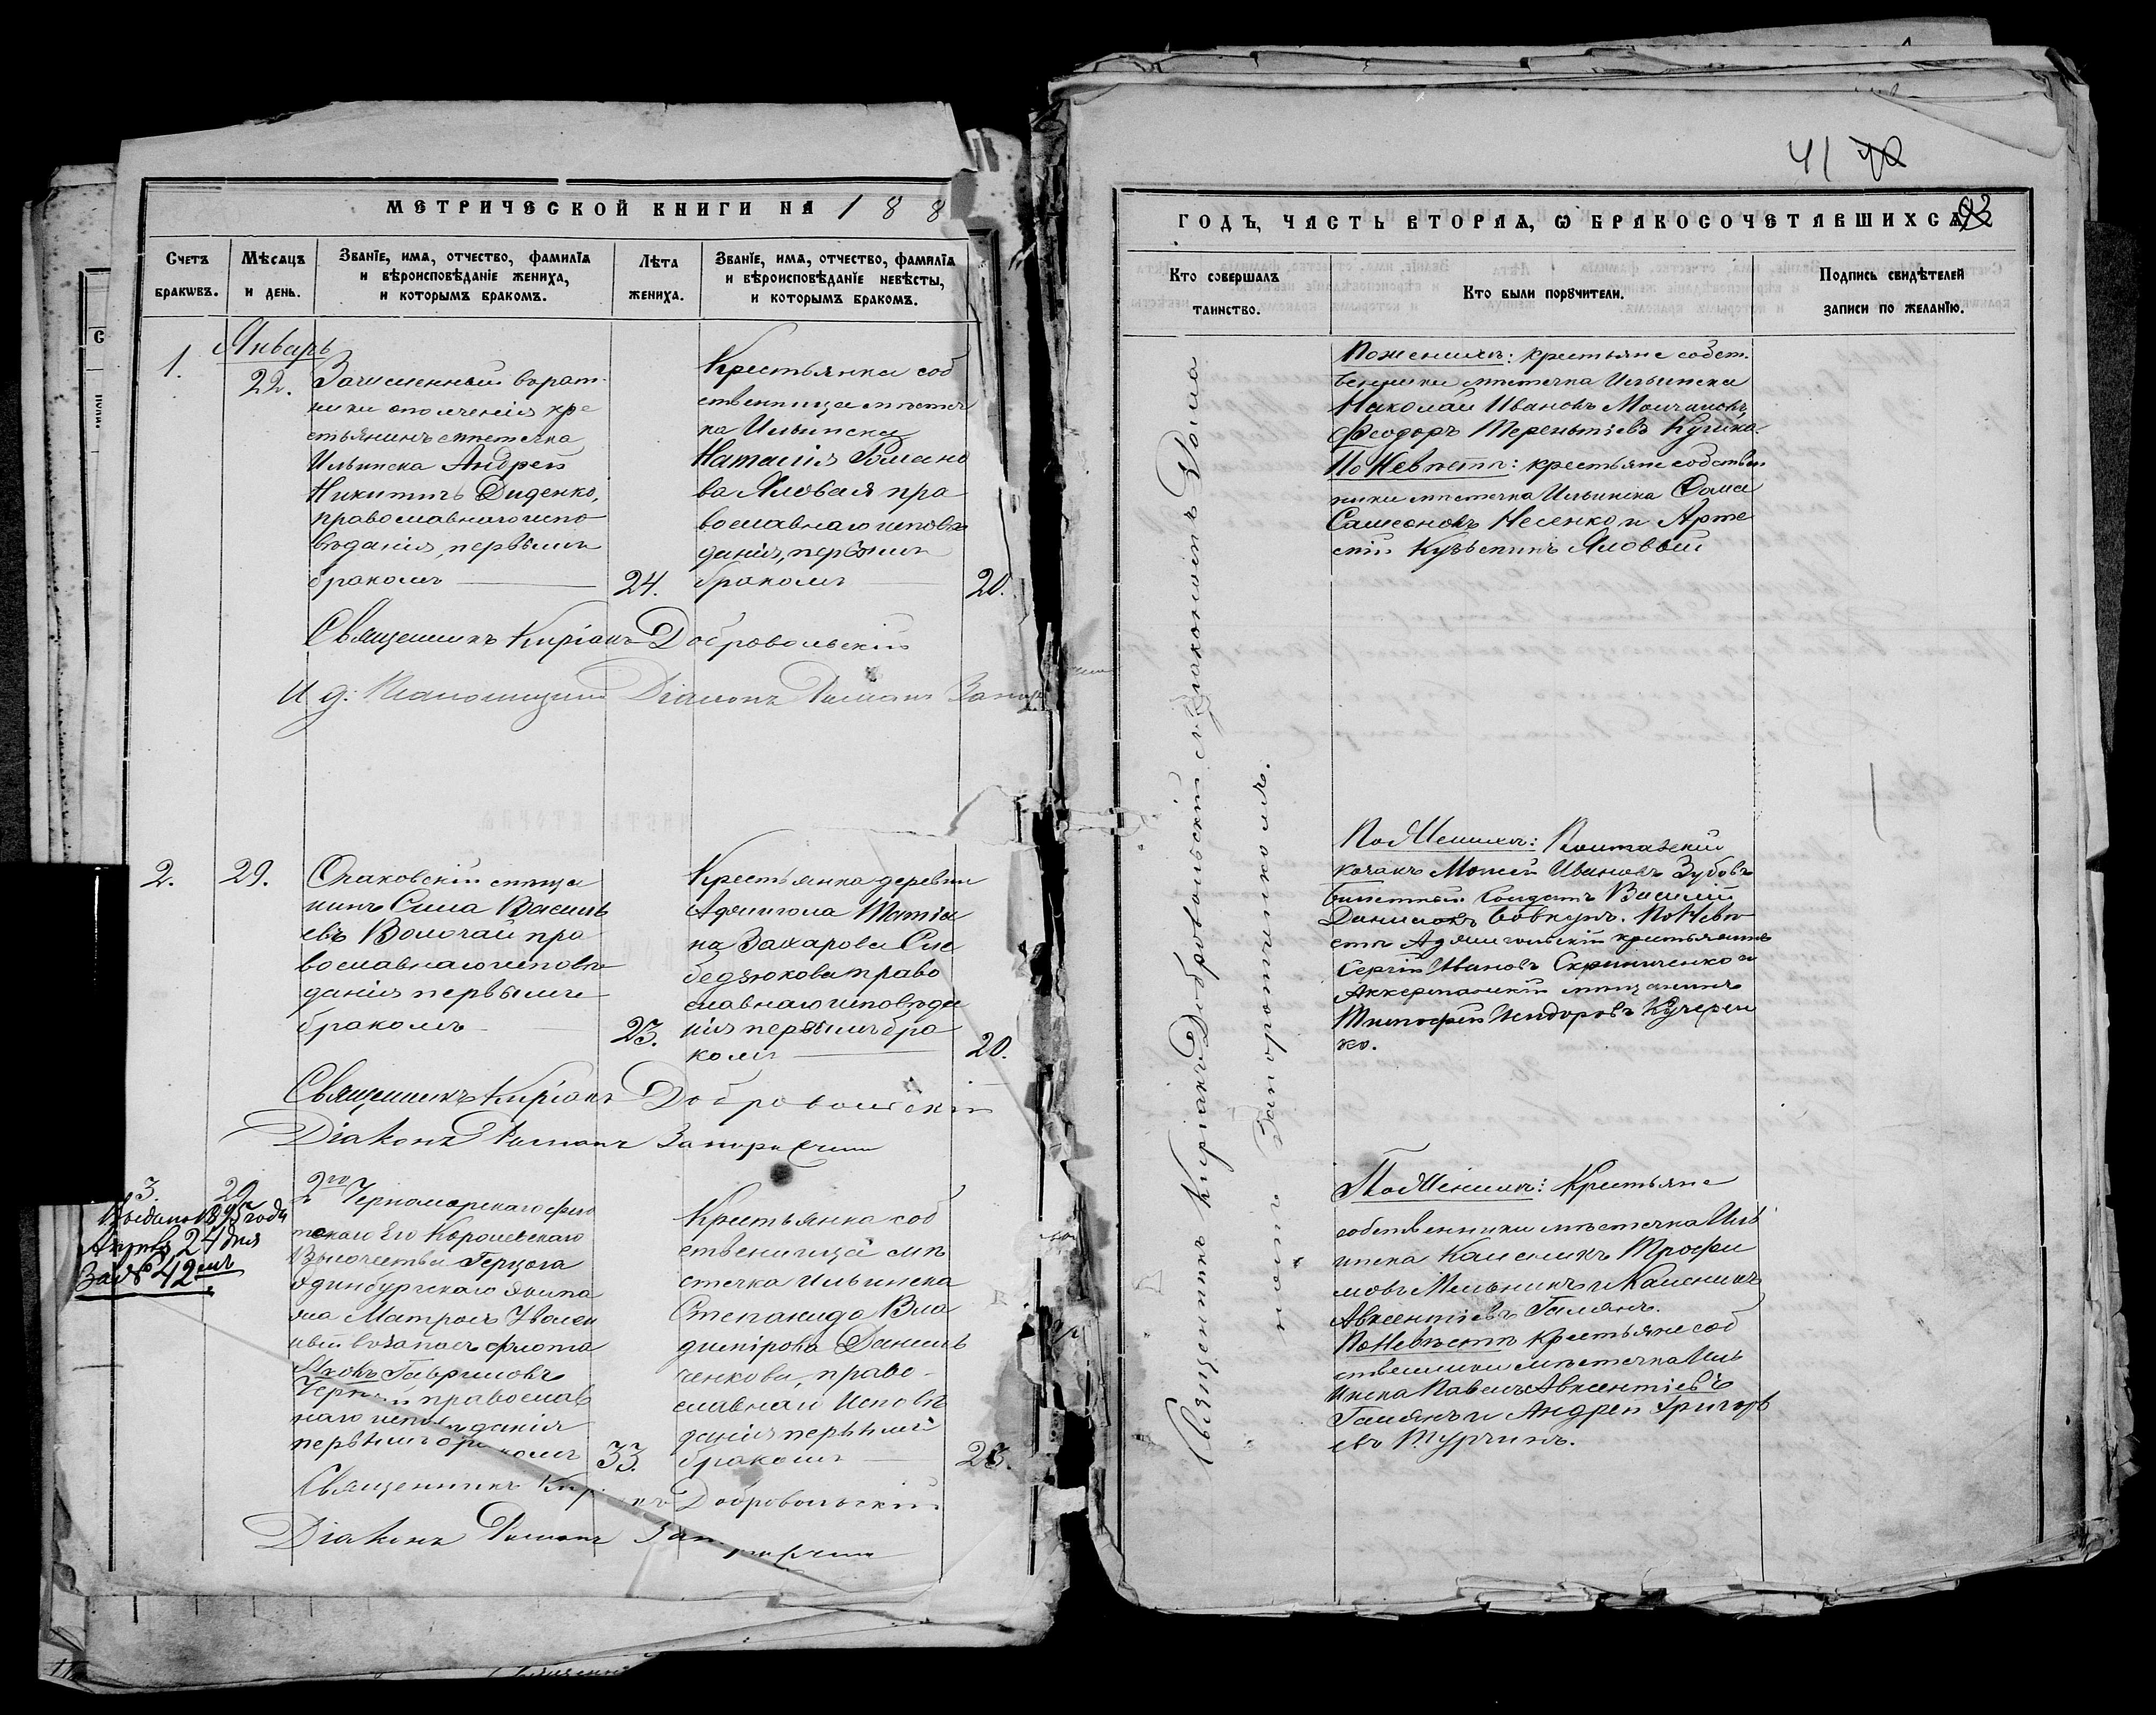 МЕТРИЧЕСКОЙ КНИГИ НА 188
Счетъ браковъ.
Мѣсяцъ и день.
Званіе, имя, отчество, фамилія и вѣроисповѣданіе жениха, и которымъ бракомъ.
Лѣта жениха.
Званіе, имя, отчество, фамилія и вѣроисповѣданіе невѣсты, и которымъ бракомъ.
Январь
1.
22.
Зачисленный въ рат-
ники ополченія кре
стьянинъ мѣстечка
Ильинска Андрей
Никитинъ Диденко,
православнаго испо
вѣданія, первымъ
бракомъ
24.
Крестьянка соб
ственница мѣстеч
ка Ильинска
Наталія Романо
ва Яловая пра
вославнаго исповѣ
данія, первымъ
бракомъ
20.
Священникъ Киріакъ Добровольскій
И. д. Псаломщика Діаконъ Романъ
2.
29.
Очаковскій мѣща
нинъ Сила Василь
евъ Волочай пра
вославнаго исповѣ
данія первымъ
бракомъ
23.
Крестьянка деревни
Аджигола Татіа
на Захарова Сле
бедзюкова право
славнаго исповѣда
нія первымъ бра
комъ
20.
Священникъ Киріакъ Добровольскій
Діаконъ Романъ Запорожченко
3.
29
Выдано 1895 года
Апрѣля 24 дня
За № 42мъ
2го Черноморскаго фло
тскаго Его Королевскаго
Высочества Герцога
Эдинбургскаго экипа
жа Матросъ Уволен
ный въ запасъ флота
Яковъ Гавриловъ
Черный православ
наго исповѣданія
первымъ бракомъ
33.
Крестьянка соб
ственница мѣ
стечка Ильинска
Степанида Вла
димірова Даниль
ченкова, право-
славнаго исповѣ
данія первымъ
бракомъ
23.
Священникъ Киріакъ Добровольскій
Діаконъ Романъ Запорожченко
41
42
ГОДЪ, ЧАСТЬ ВТОРАЯ, Ѡ БРАКОСОЧЕТАВШИХСЯ
Кто совершалъ таинство.
Кто были поручители.
Подпись свидѣтелей записи по желанію.
Священникъ Киріакъ Добровольскій съ Діакономъ Рома
номъ Запорожченкомъ.
По женихѣ: крестьяне собст-
венники мѣстечка Ильинска
Николай Ивановъ Молчановъ,
Феодоръ Терентіевъ Кулика.
По Невѣстѣ: крестьяне собствен
ники мѣстечка Ильинска Фома
Самсоновъ Несенко и Арте
мій Кузьминъ Яловый
По Женихѣ: Полтавскій
козакъ Моисей Ивановъ Зубовъ
билетный Солдатъ Василій
Даниловъ Бовкунъ. По Невѣ
стѣ Аджигольскій крестьянинъ
Сергій Ивановъ Скриниченко и
Аккерманскій мѣщанинъ
Тимофей Исидоровъ Кучерен
ко.
По Женихѣ: Крестьяне
собственники мѣстечка Иль
инска Калсникъ Трофи
мовъ Мельникъ и Калсникъ
Авксентіевъ Галянъ.
По Невѣстѣ крестьяне соб
ственники мѣстечка Иль
инска Павелъ Авксентіевъ
Галянъ и Андрей Григорь
евъ Турчинъ.